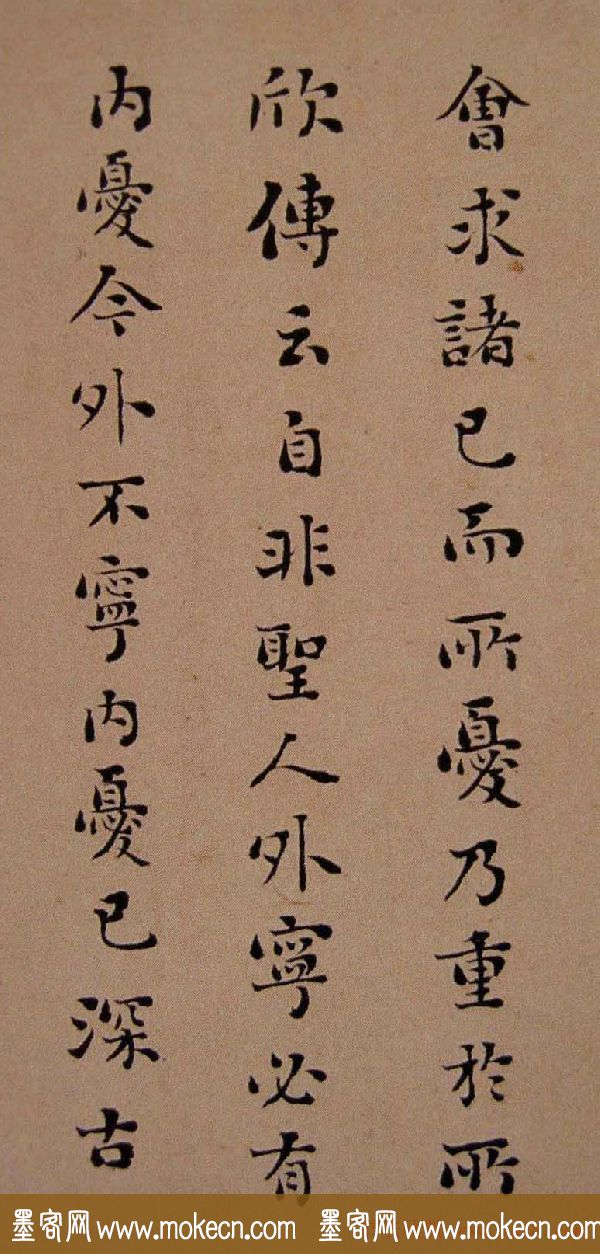 會求諸己而所憂乃重於所
欣傳云自非聖人外寧必有
内憂今外不寧内憂已深古
墨客网 www.mokecn.com 墨客网 www.mokecn.com